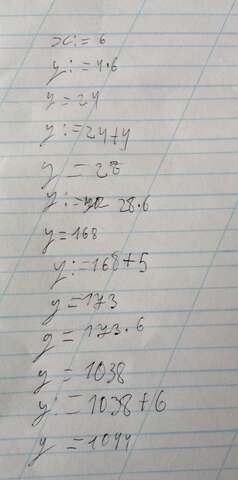 x:=6
y:=4·6
y=24
y:=24+4
y=28
y:= 28·6
y=168
y:=168+5
y=173
y=173·6
y=1038
y:=1038+6
y=1044